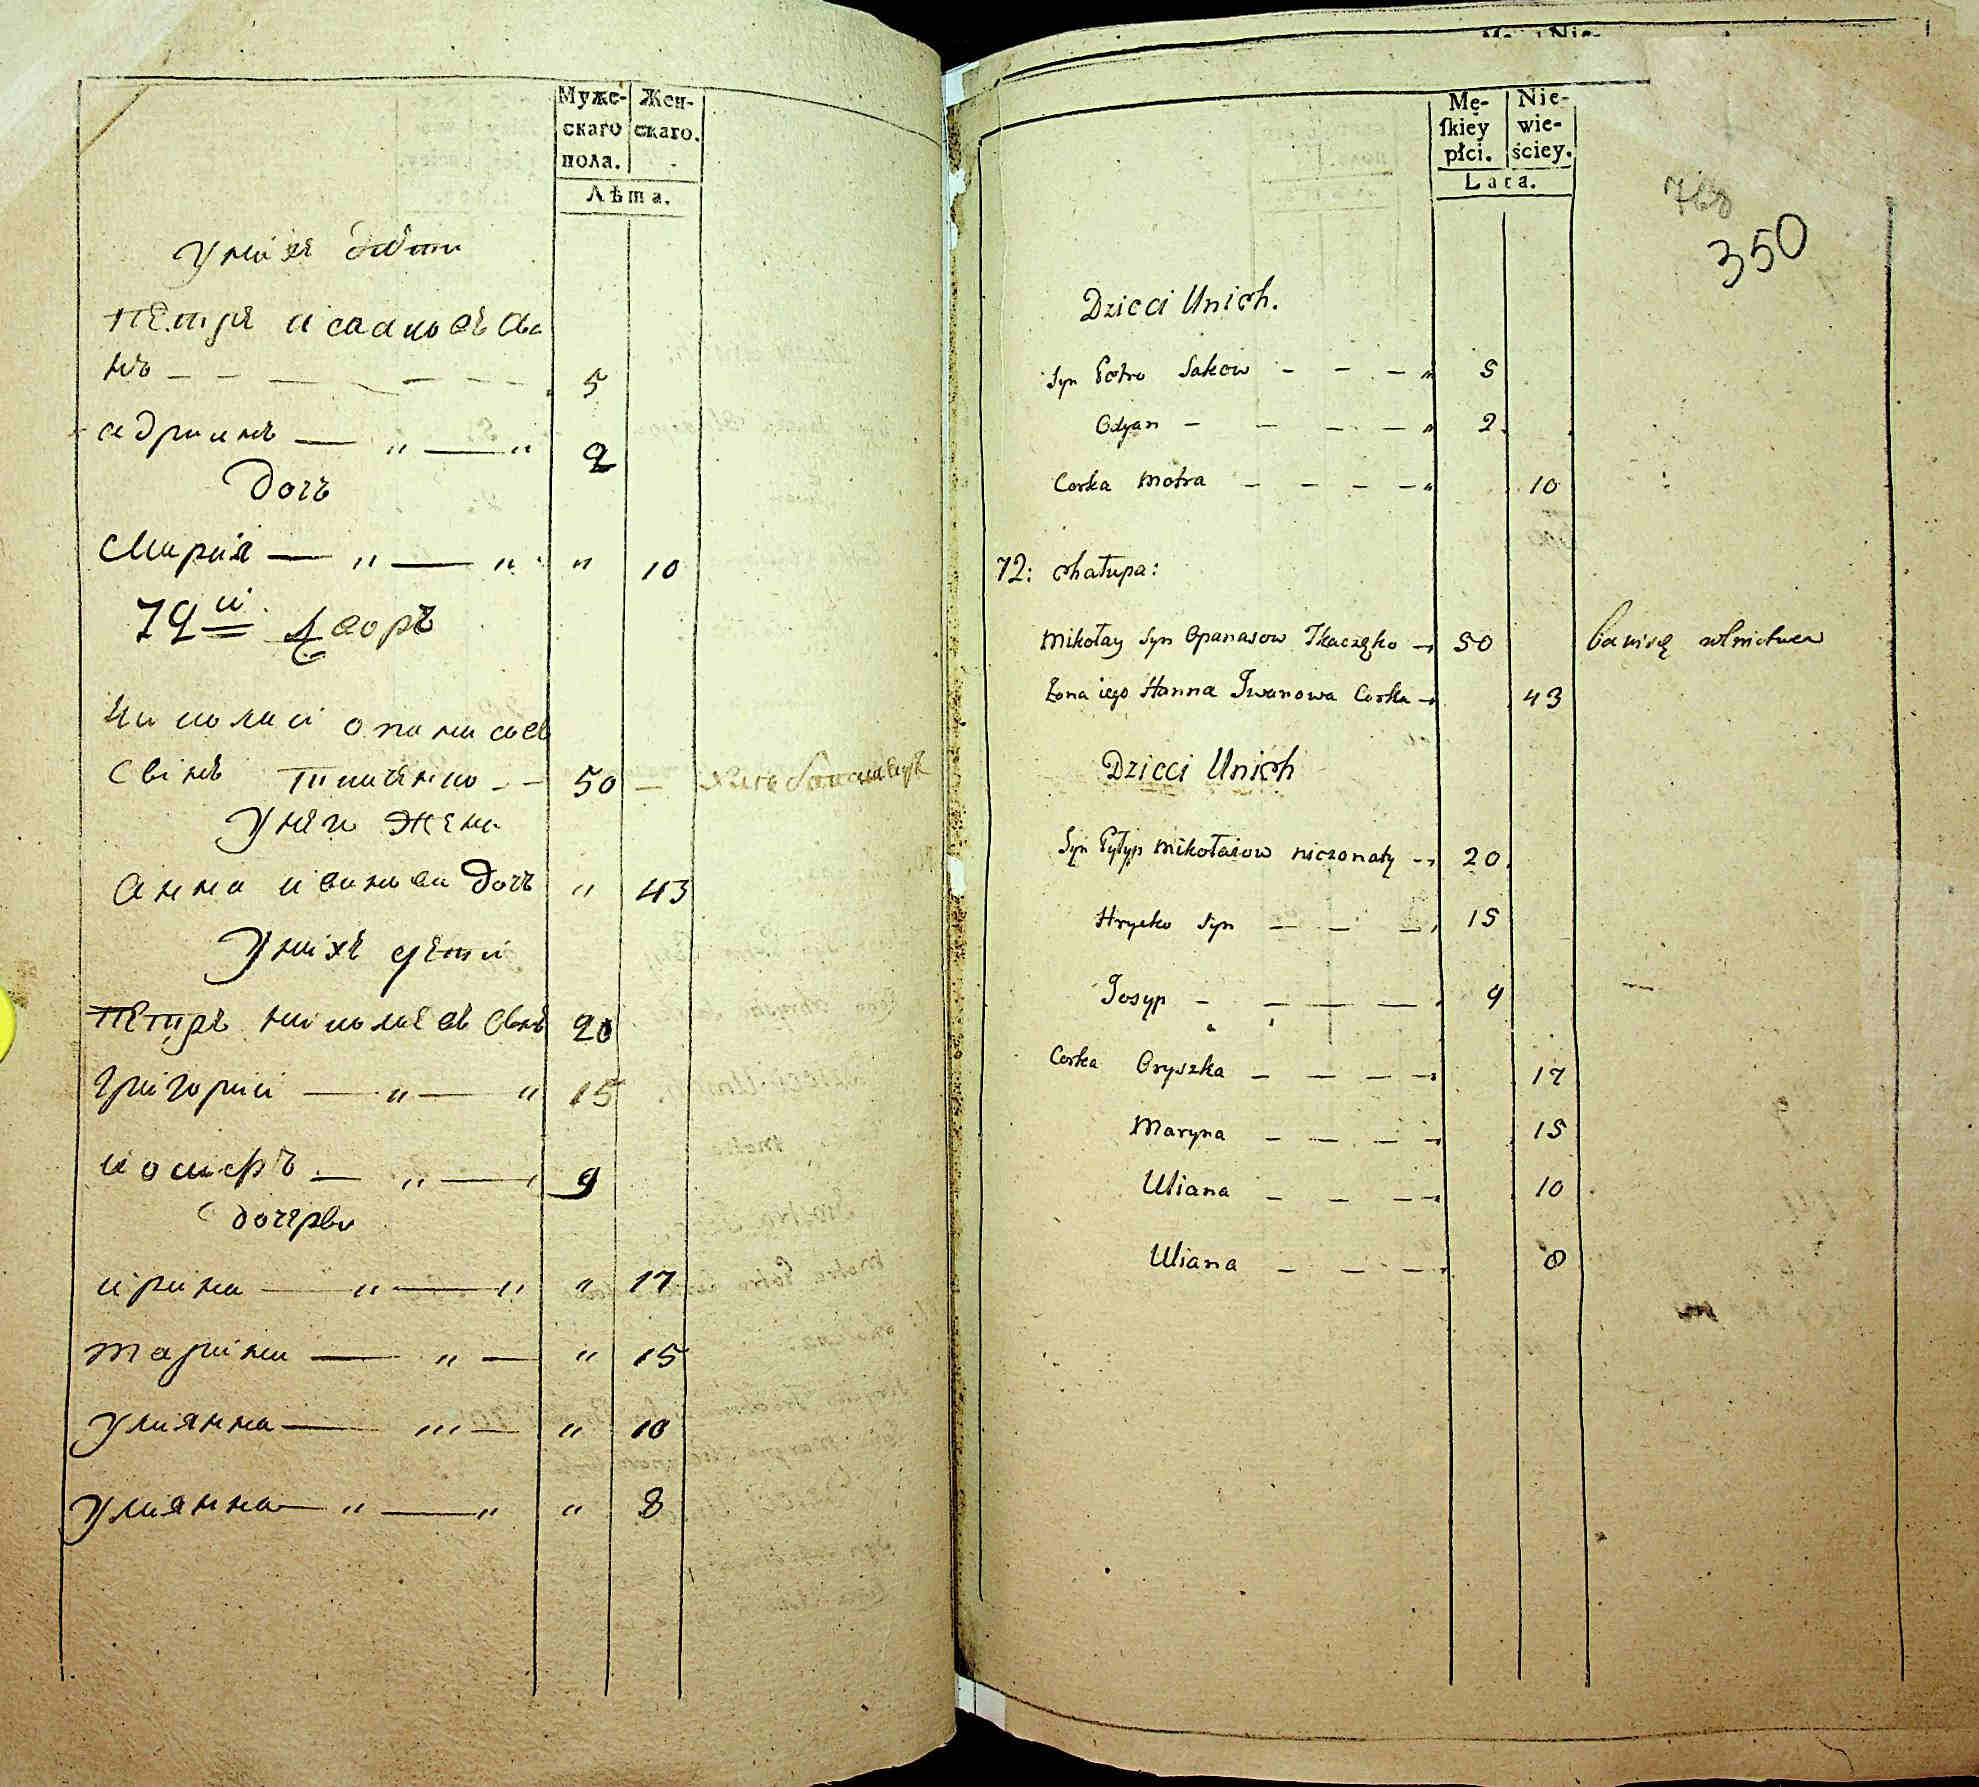 Муже-
скаго
пола.
Жен-
скаго.
Лѣта.
У них дѣти
Петръ исааковъ сы
нъ 5
адриянъ 2
Дочь
Мария " 10
72й Дворъ
Николай опанасов
Сынъ 50
У него жена
Анна иванова Дочь " 43
У нихъ дѣти
Петръ николаевъ сынъ 20
Григорий 15
иосифъ 9
дочери
ирина " 17
марина " 15
улиянна " 10
улиянна " 8
Mę-
skiey
płci.
Nie-
wie-
ściey.
Lata.
768
350
Dzieci Unich.
Syn Petro Sakow 5
Odyan 2
Corka Motra 10
72: Chałupa:
Mikołay Syn Opanasow Tkaczęko 50
Żona iego Hanna Iwanowa Corka 43
Dzieci Unich
Syn Pyłyp Mikołaiow nieżonaty 20
Hrycko Syn 15
Josyp 9
Corka Oryszka 17
Maryna 15
Uliana 10
Uliana 8